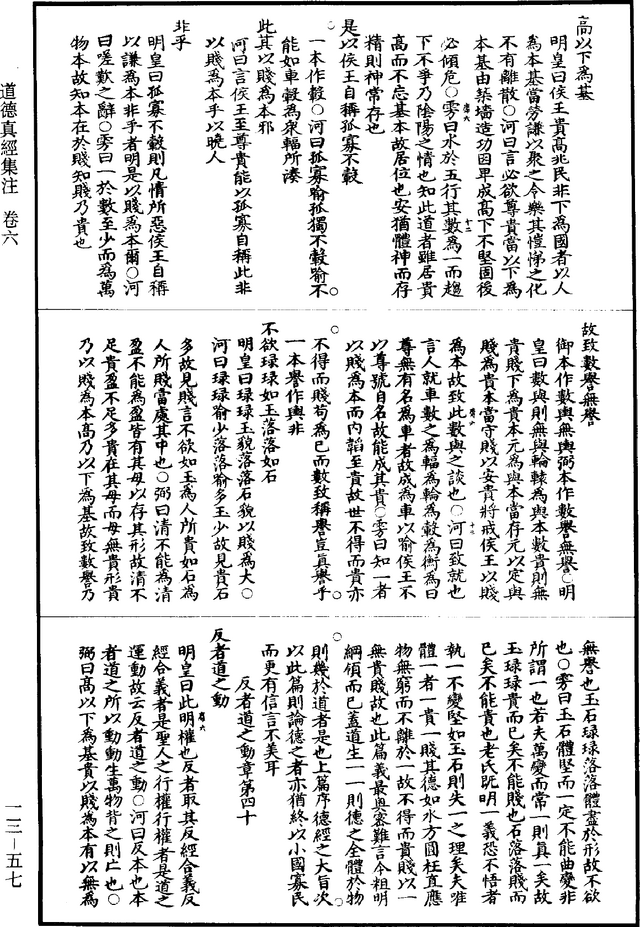 高以下為基
明皇曰侯王貴高兆民非下為國者以人
為本基當勞謙以聚之令樂其愷悌之化
不有離散○河曰言必欲尊貴當以下為
本基由築墻造功因卑成高下不堅固後
必傾危○雱曰水於五行其數為一而趨
下不爭乃陰陽之情也知此道者雖居貴
高而不忘基本故居位也安猶體神而存
精則神常存也
是以侯王自稱孤寡不穀
一本作轂○河曰孤寡喻孤獨不轂喻不
能如車轂為衆輻所湊
此其以賤為本邪
河曰言侯王至尊貴能以孤寡自稱此非
以賤為本乎以曉人
非乎
明皇曰孤寡不轂則凡情所惡侯王自稱
以謙為本非乎者明是以賤為本爾○河
曰嗟歎之辭○雱曰一於數至少而為萬
物本故知本在於賤知賤乃貴也
故致數譽無譽
御本作數輿無輿弼本作數譽無譽○明
皇曰數輿則無輿輪轅為輿本數貴則無
貴賤下為貴本元為輿本當存元以定輿
賤為貴本當守賤以安貴將戒侯王以賤
為本故致此數輿之談也○河曰致就也
言人就車數之為輻為輪為轂為衡為
尊無有名為車者故成為車以喻侯王不
以尊號自名故能成其貴○雱曰知一者
以賤為本而內韜至貴故世不得而貴亦
不得而賤苟為已而數致稱譽豈真譽乎
一本譽作輿非
不欲琭琭如玉落落如石
明皇曰琭琭玉貌落落石貌以賤為大○
河曰琭琭喻少落落喻多玉少故見貴石
多故見賤言不欲如玉為人所貴如石為
人所賤當處其中也○弼曰清不能為清
盈不能為盈皆有其母以存其形故清不
足貴盈不足多貴在其母而母無貴形貴
乃以賤為本高乃以下為基故致數譽乃
無譽也玉石琭琭落落體盡於形故不欲
也○雱曰玉石體堅而一定不能曲變非
所謂一也若夫萬變而常一則真一矣故
玉琭琭貴而已矣不能賤也石落落賤而
已矣不能貴也老氏既明一義恐不悟者
執一不變堅如玉石則失一之理矣夫唯
體一者一貴一賤其德如水方圓枉直應
物無窮而不離於一故不得而貴賤以一
無貴賤故也此篇義最奧密難言今粗明
綱領而已蓋道生一一則德之全體於物
則幾於道者是也上篇序德經之大旨次
以此篇則論德之者亦猶終以小國寡民
而更有信言不美耳
反者道之動章第四十
反者道之動
明皇曰此明權也反者取其反經合義反
經合義者是聖人之行權行權者是道之
運動故云反者道之動○河曰反本也本
者道之所以動動生萬物背之則亡也○
弼曰高以下為基貴以賤為本有以無為
道德真經集注 卷六
一三—五七